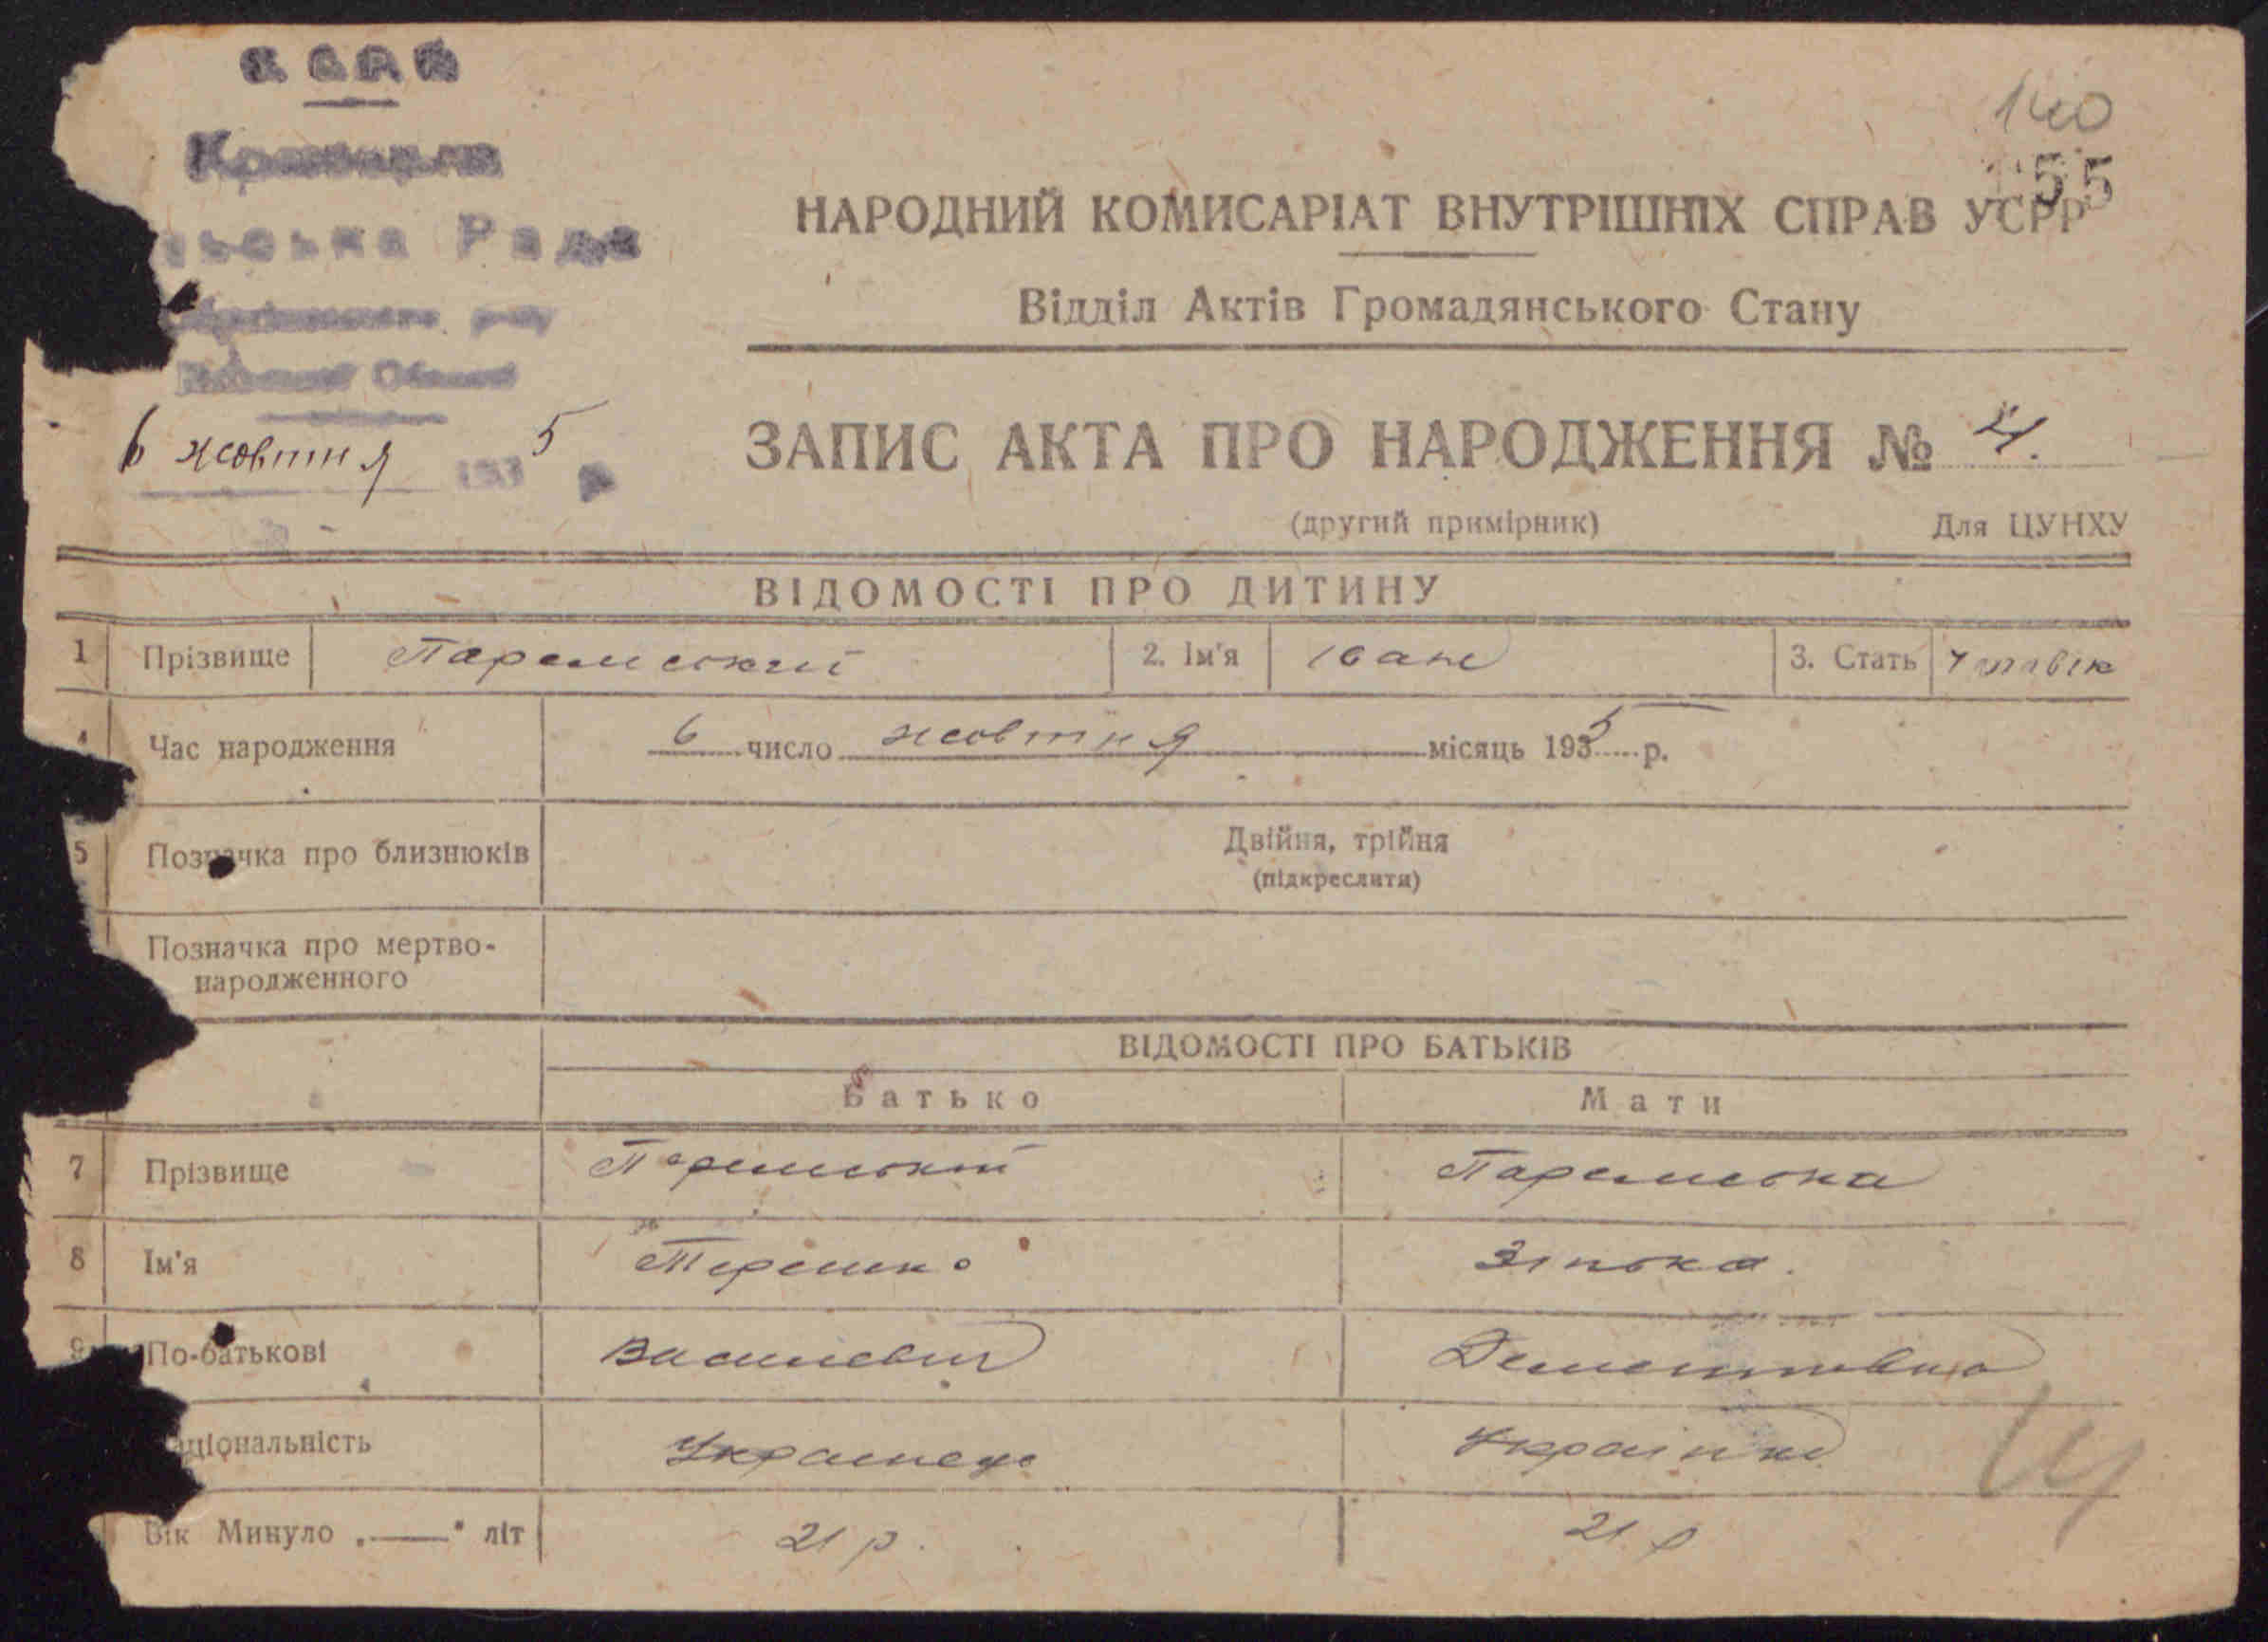 УСРР
140
55
Рада
НАРОДНИЙ КОМИСАРІАТ ВНУТРІШНІХ СПРАВ УСРР
Відділ Актів Громадянського Стану
6 жовтня 1935 р.
ЗАПИС АКТА ПРО НАРОДЖЕННЯ №
(другий примірник) Для ЦУНХУ
ВІДОМОСТІ ПРО ДИТИНУ
1 Прізвище Паремський 2. Ім'я Іван 3. Стать чоловік
4 Час народження 6 число жовтня місяць 1935 р.
5 Позначка про близнюків Двійня, трійня
(підкреслити)
Позначка про мертво-
народженного
ВІДОМОСТІ ПРО БАТЬКІВ
Батько Мати
7 Прізвище Паремський Паремська
8 Ім'я Терешко Зінька.
9 По-батькові Василевич Дементовна
аціональність Украинець Українка
Вік Минуло „ — " літ 21 р. 21 р